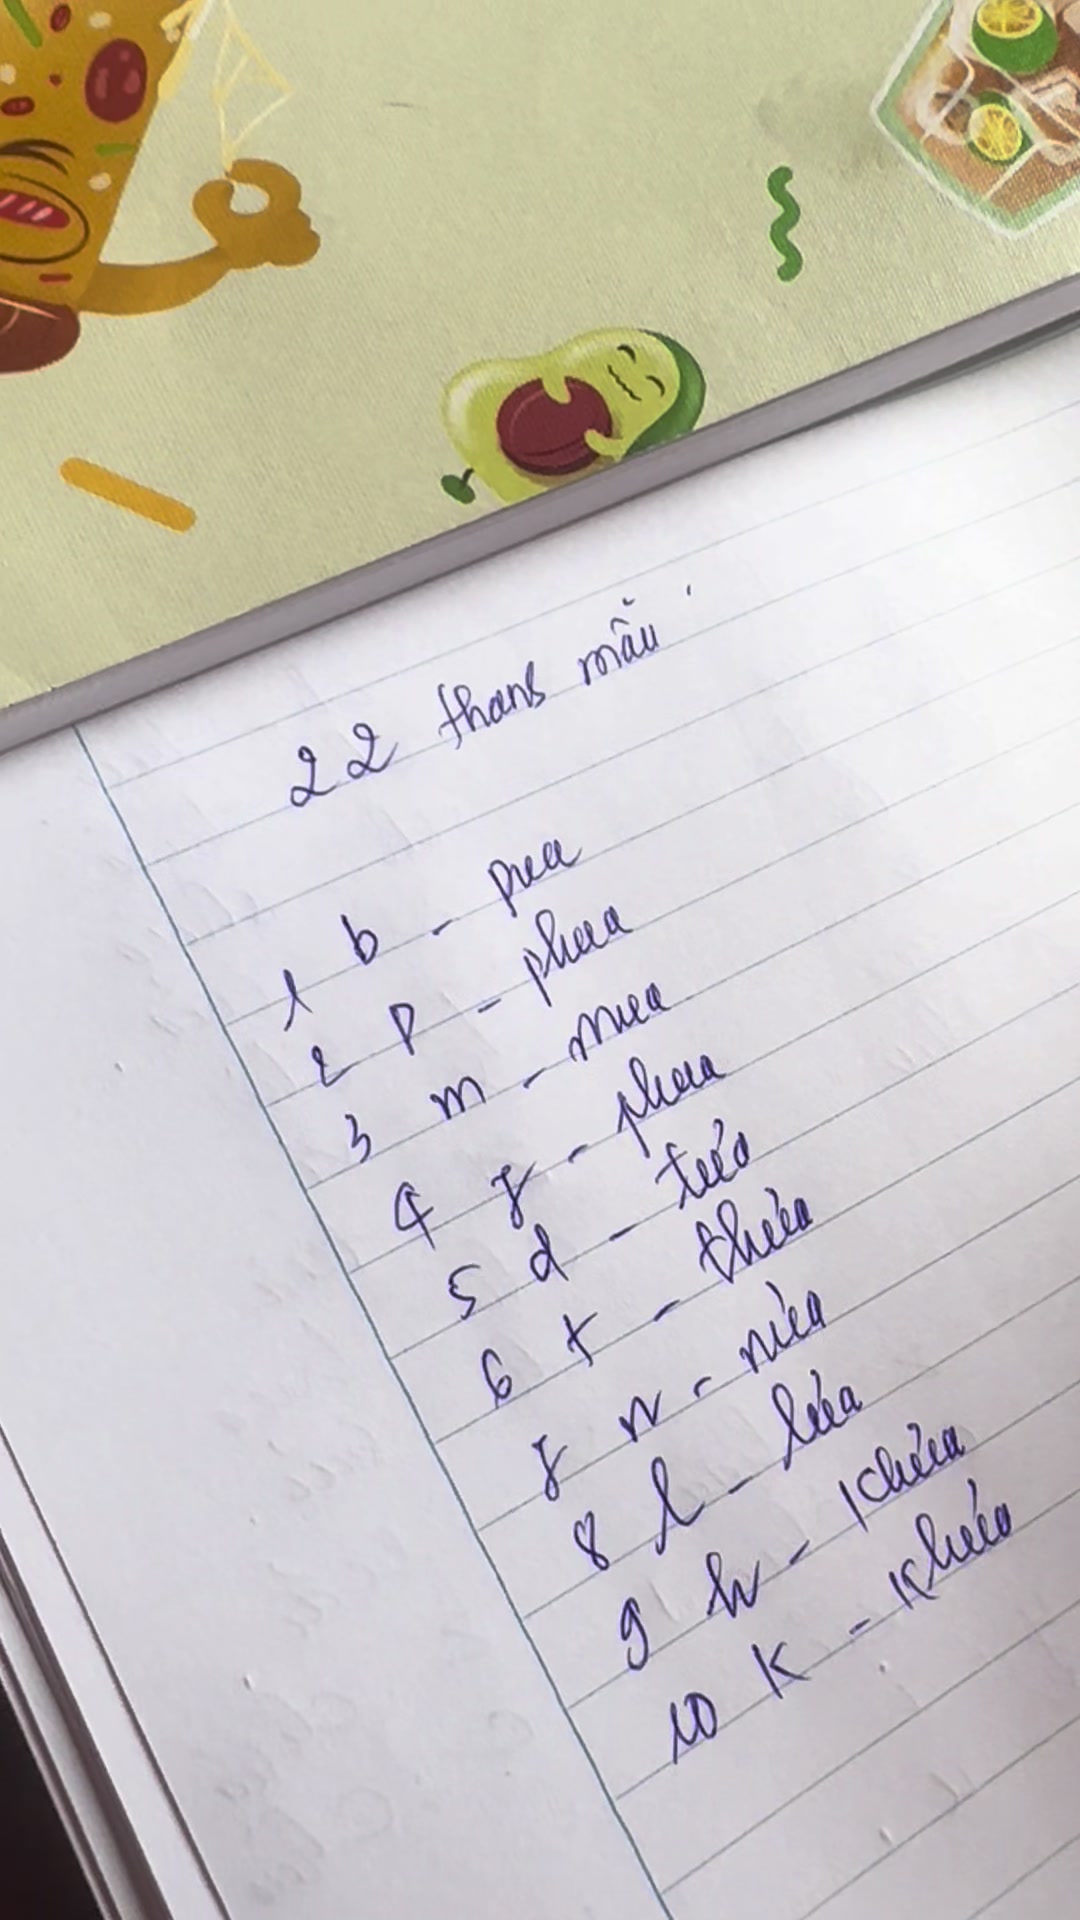 22 thanh mẫu
1 b - pua
2 p - phua
3 m - mua
4 f - phua
5 d - tứa
6 t - thứa
7 n - nứa
8 l - lứa
9 h - khứa
10 k - khứa